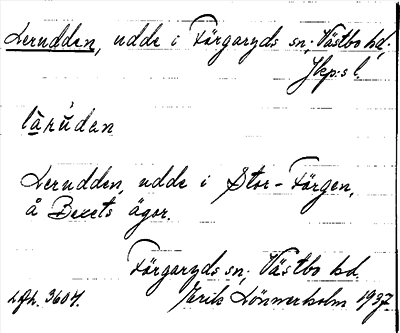 Lerudden, udde i Färgaryds sn; Västbo hd;
Jkp:s l
lārúdan
Lerudden, udde i Stor-Färgen,
å Bexets ägor.
Färgaryds sn; Västbo hd,
Lfh. 3607. Erik Lönnerholm 1937